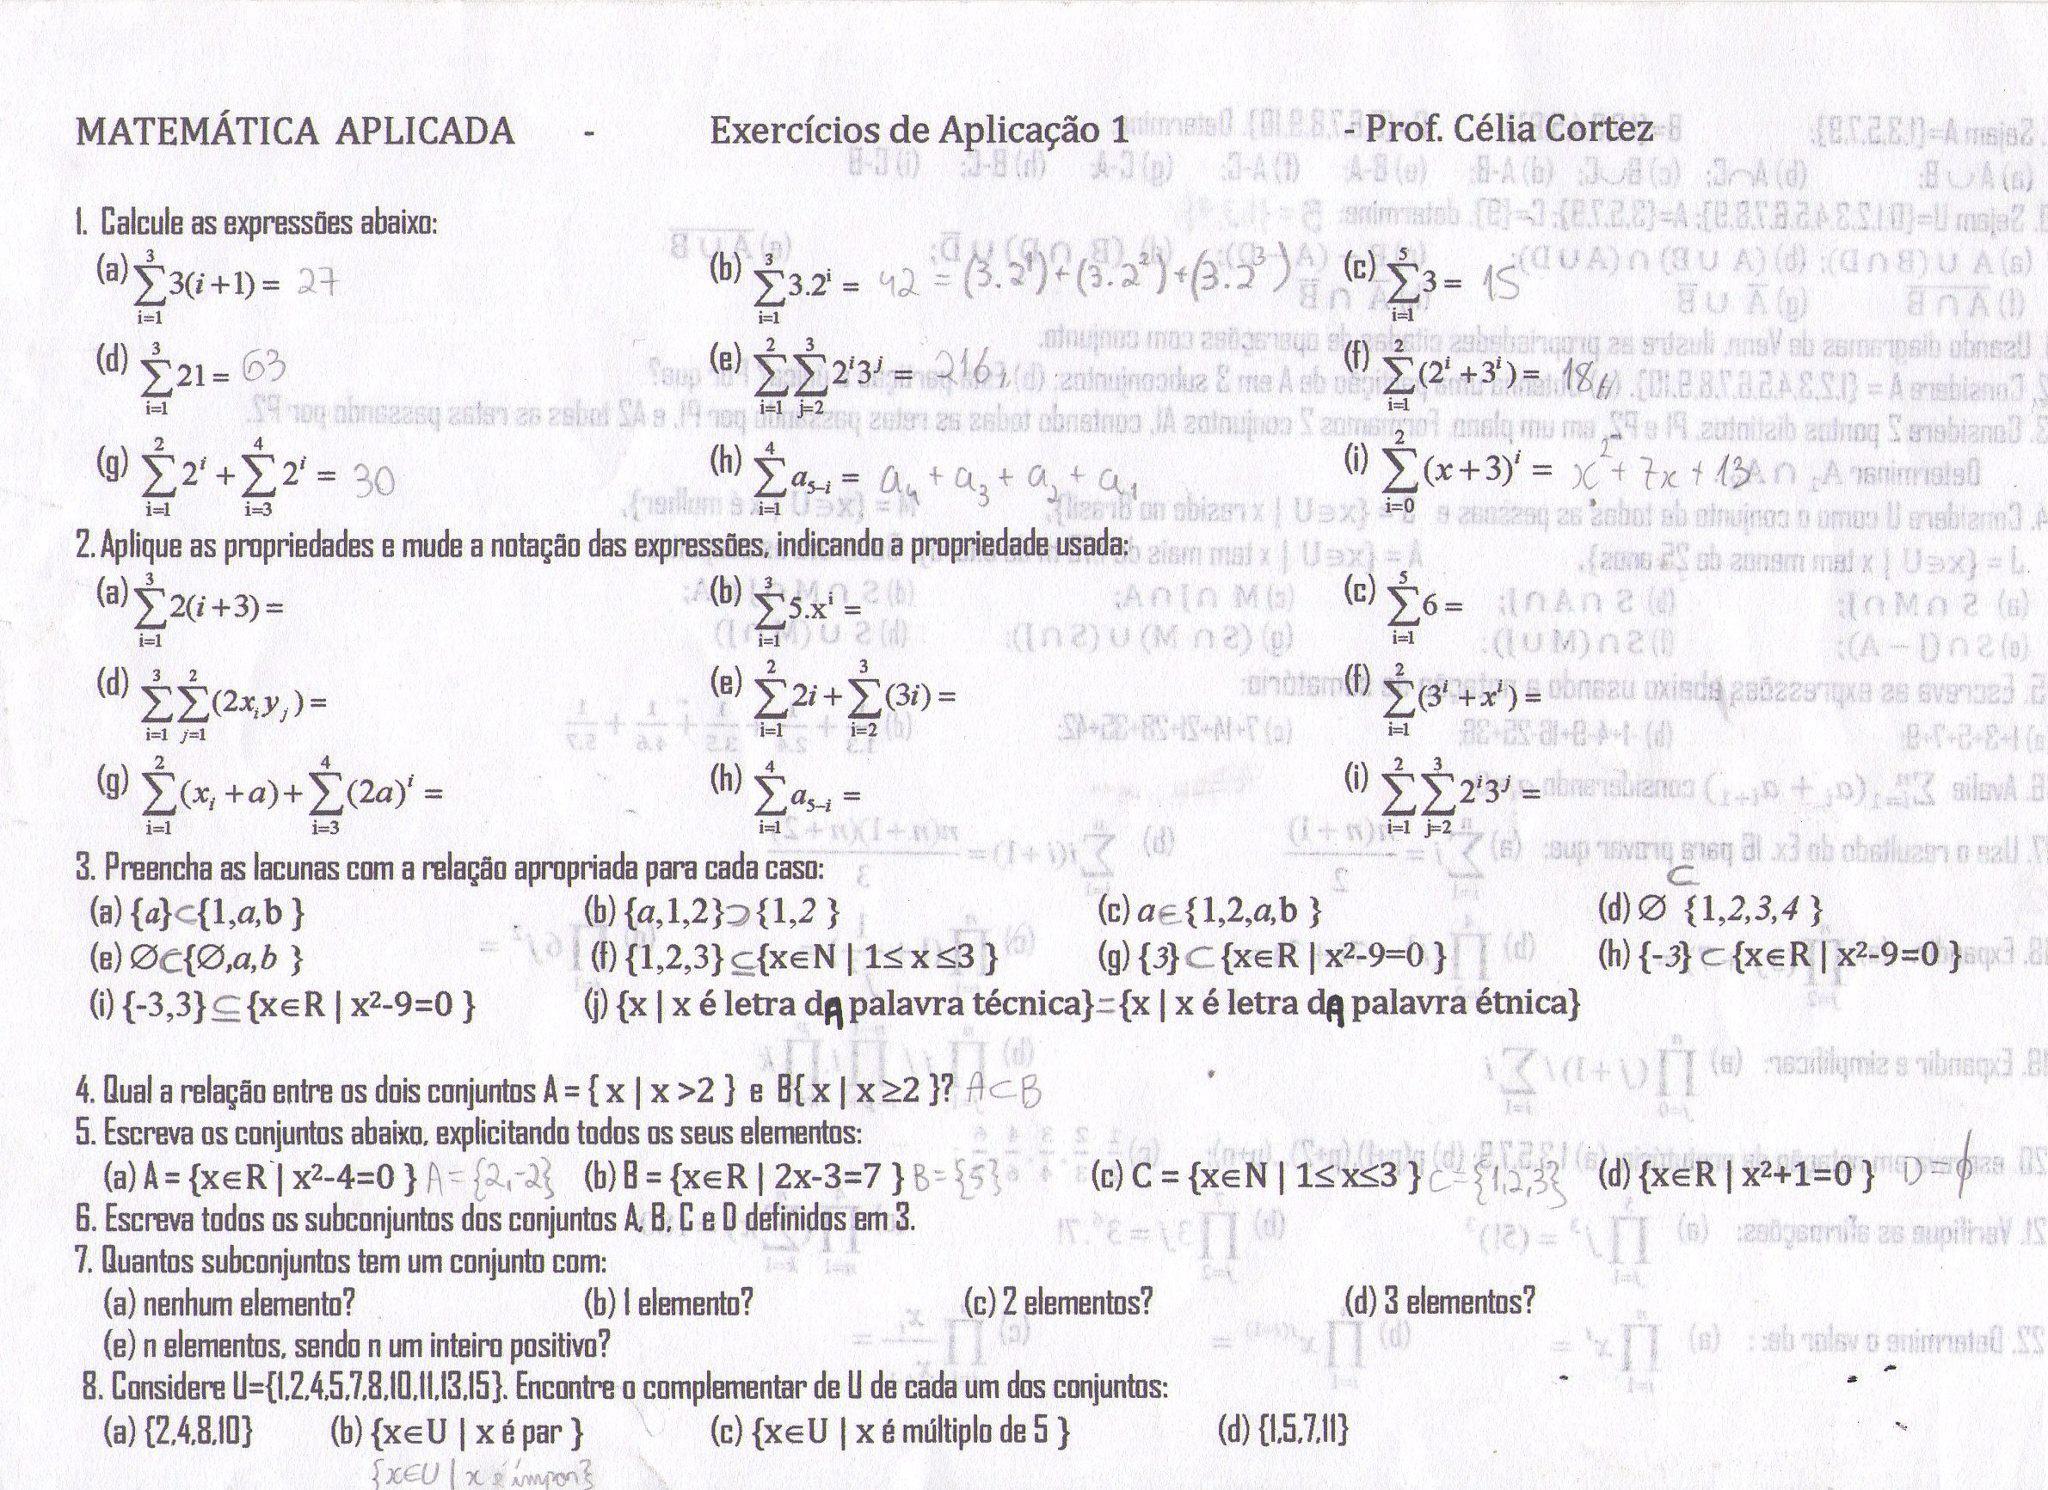 MATEMÁTICA APLICADA - Exercícios de Aplicação 1 - Prof. Célia Cortez
1. Calcule as expressões abaixo:
(a) ∑_{i=1}^{3} 3(i+1) = 27 (b) ∑_{i=1}^{3} 3.2^i = 42 = (3.2^1)+(3.2^2)+(3.2^3) (c) ∑_{i=1}^{5} 3 = 15
(d) ∑_{i=1}^{3} 21 = 63 (e) ∑_{i=1}^{2} ∑_{j=2}^{3} 2^i 3^j = 216 (f) ∑_{i=1}^{2} (2^i + 3^i) = 18
(g) ∑_{i=1}^{2} 2^i + ∑_{i=3}^{4} 2^i = 30 (h) ∑_{i=1}^{4} a_{5-i} = a_4 + a_3 + a_2 + a_1 (i) ∑_{i=0}^{2} (x+3)^i = x^2 + 7x + 13
2. Aplique as propriedades e mude a notação das expressões, indicando a propriedade usada:
(a) ∑_{i=1}^{3} 2(i+3) = (b) ∑_{i=1}^{3} 5.x^i = (c) ∑_{i=1}^{5} 6 =
(d) ∑_{i=1}^{3} ∑_{j=1}^{2} (2x_i y_j) = (e) ∑_{i=1}^{2} 2i + ∑_{i=2}^{3} (3i) = (f) ∑_{i=1}^{2} (3^i + x^i) =
(g) ∑_{i=1}^{2} (x_i + a) + ∑_{i=3}^{4} (2a)^i = (h) ∑_{i=1}^{4} a_{5-i} = (i) ∑_{i=1}^{2} ∑_{j=2}^{3} 2^i 3^j =
3. Preencha as lacunas com a relação apropriada para cada caso:
(a) {a}⊂{1,a,b } (b) {a,1,2}⊃{1,2 } (c) a∈{1,2,a,b } (d) ∅ ⊂ {1,2,3,4 }
(e) ∅⊂{∅,a,b } (f) {1,2,3}⊆{x∈N | 1≤ x ≤3 } (g) {3}⊂{x∈R | x²-9=0 } (h) {-3}⊂{x∈R | x²-9=0 }
(i) {-3,3}⊆{x∈R | x²-9=0 } (j) {x | x é letra dA palavra técnica}={x | x é letra dA palavra étnica}
4. Qual a relação entre os dois conjuntos A = { x | x >2 } e B{ x | x ≥2 }? A⊂B
5. Escreva os conjuntos abaixo, explicitando todos os seus elementos:
(a) A = {x∈R | x²-4=0 } A={2,-2} (b) B = {x∈R | 2x-3=7 } B={5} (c) C = {x∈N | 1≤x≤3 } C={1,2,3} (d) {x∈R | x²+1=0 } D=ϕ
6. Escreva todos os subconjuntos dos conjuntos A, B, C e D definidos em 3.
7. Quantos subconjuntos tem um conjunto com:
(a) nenhum elemento? (b) 1 elemento? (c) 2 elementos? (d) 3 elementos?
(e) n elementos, sendo n um inteiro positivo?
8. Considere U={1,2,4,5,7,8,10,11,13,15}. Encontre o complementar de U de cada um dos conjuntos:
(a) {2,4,8,10} (b) {x∈U | x é par } (c) {x∈U | x é múltiplo de 5 } (d) {1,5,7,11}
{x∈U | x é ímpar}